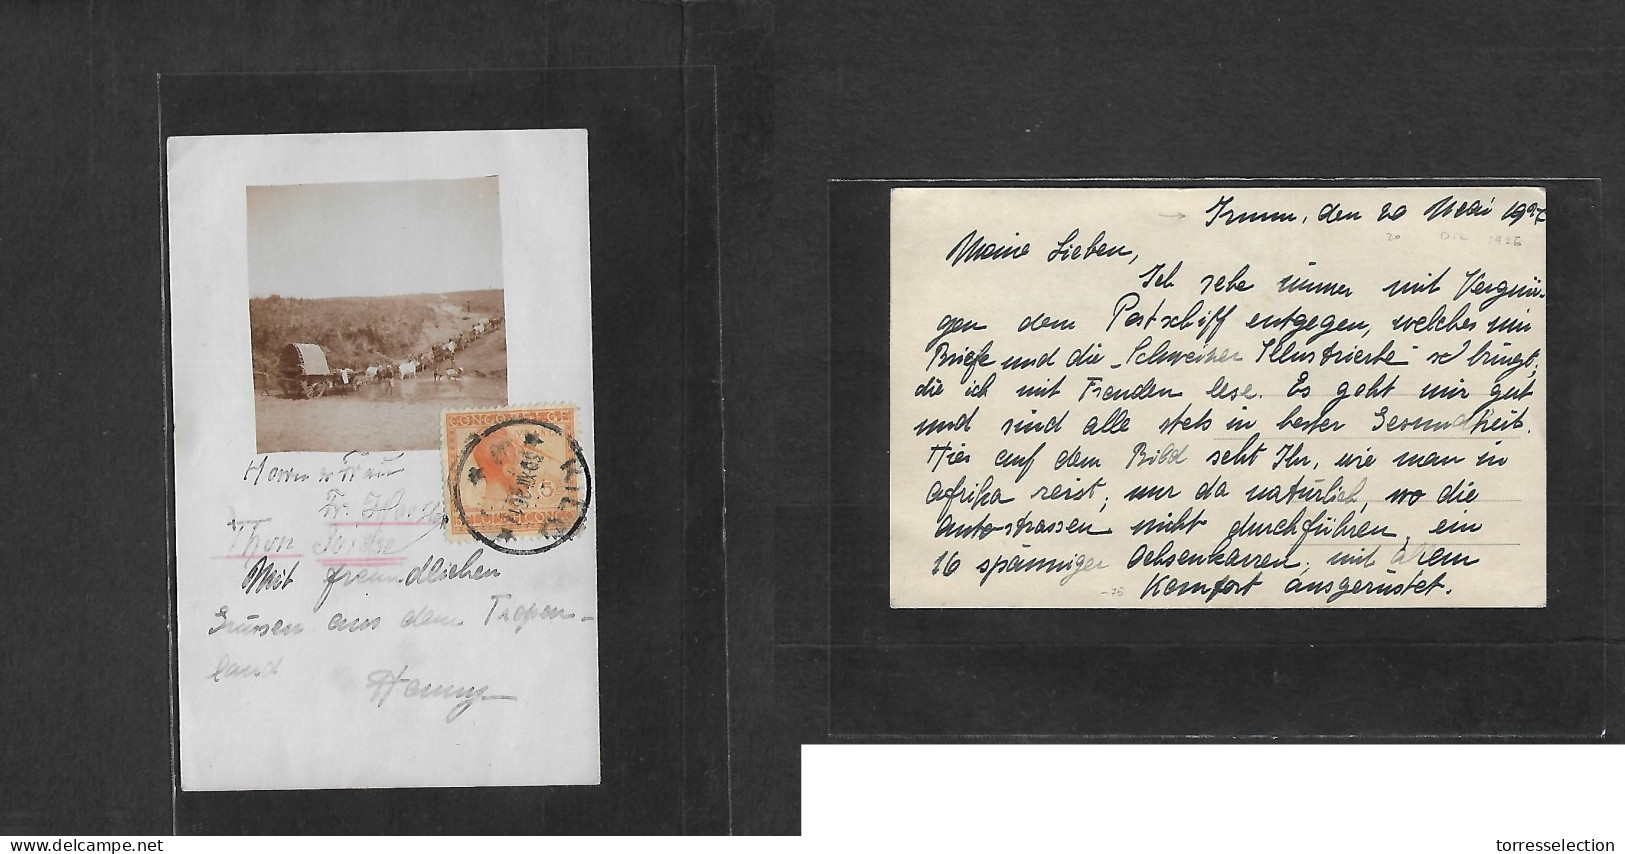 CONGO BELGE
Herrn u Frau
Thon
Mit freundlichen
Grüssen aus dem Tropen-
land
Hanny
den 20 Mai 1927
20 Dez 1926
Meine Lieben,
Ich sehe immer mit Vergnü-
gen dem Postschiff entgegen, welches mir
Briefe und die "Schweizer Illustrierte" bringt,
die ich mit Freuden lese. Es geht mir gut
und sind alle stets in bester Gesundheit.
Hier auf dem Bild seht Ihr, wie man in
Afrika reist; nur da natürlich, wo die
Autostrassen nicht durchführen, ein
16 spänniger Ochsenkarren, mit allem
Komfort ausgerüstet.
-25
torresselection